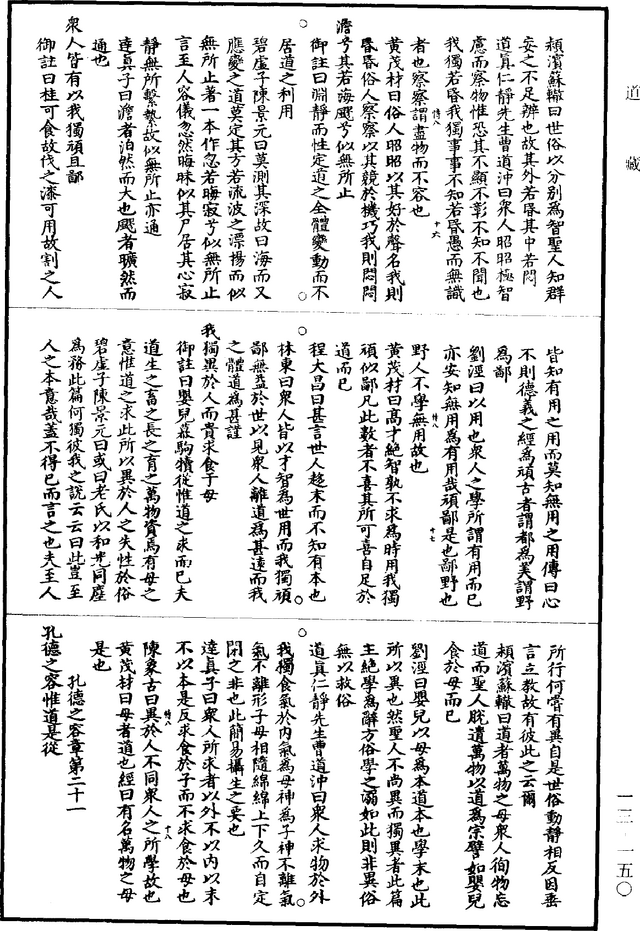 道藏
潁濱蘇轍曰世俗以分別為智聖人知群
妄之不足辨也故其外若昏其中若悶
道真仁靜先生曹道沖曰眾人昭昭極智
慮而察物惟恐其不顯不彰不知不聞也
我獨若昏我獨事事不知若昏愚而無識
者也察察謂盡物而不容也
黃茂材曰俗人昭昭以其好於聲名我則
昏昏俗人察察以其競於機巧我則悶悶
澹兮其若海飂兮似無所止
御註曰淵靜而性定道之全體變動而不
居道之利用
碧虛子陳景元曰莫測其深故曰海而又
應變之道莫定其方若流波之漂揚而似
無所止著一本作忽若晦寂兮似無所止
言至人容儀忽然晦昧似其尸居其心寂
靜無所繫縶故似無所止亦通
達真子曰澹者泊然而大也飂者曠然而
通也
眾人皆有以我獨頑且鄙
御註曰桂可食故伐之漆可用故割之人
皆知有用之用而莫知無用之用傳曰心
不則德義之經為頑古者謂都為美謂野
為鄙
劉涇曰以用也眾人之學所謂有用而已
亦安知無用為有用哉頑鄙是也鄙野也
野人不學無用故也
黃茂材曰高才絕智孰不求為時用我獨
頑似鄙凡此數者不喜其所可喜自足於
道而已
程大昌曰甚言世人趍末而不知有本也
林東曰眾人皆以才智為世用而我獨頑
鄙無益於世以見眾人離道為甚遠而我
之體道為甚謹
我獨異於人而貴求食子母
御註曰嬰兒慕駒犢從惟道之求而已夫
道生之畜之長之育之萬物資焉有母之
意惟道之求此所以異於人之失性於俗
碧虛子陳景元曰或曰老氏以和光同塵
為務此篇何獨彼我之說云云曰此豈至
人之本意哉蓋不得已而言之也夫至人
所行何嘗有異自是世俗動靜相反因垂
言立教故有彼此之云爾
潁濱蘇轍曰道者萬物之母眾人徇物忘
道而聖人脫遺萬物以道為宗譬如嬰兒
食於母而已
劉涇曰嬰兒以母為本道本也學末也此
所以異也然聖人不尚異而獨異者此篇
主絕學為解方俗學之溺如此則非異俗
無以救俗
道真仁靜先生曹道沖曰眾人求物於外
我獨食氣於內氣為母神為子神不離氣
氣不離形子母相隨綿綿上下久而自定
閉之非也此簡易攝生之要也
達真子曰眾人所求者以外不以內以末
不以本是反求食於子而不求食於母也
陳象古曰異於人不同眾人之所學故也
黃茂材曰母者道也經曰有名萬物之母
是也
孔德之容章第二十一
孔德之容惟道是從
一三·一五〇